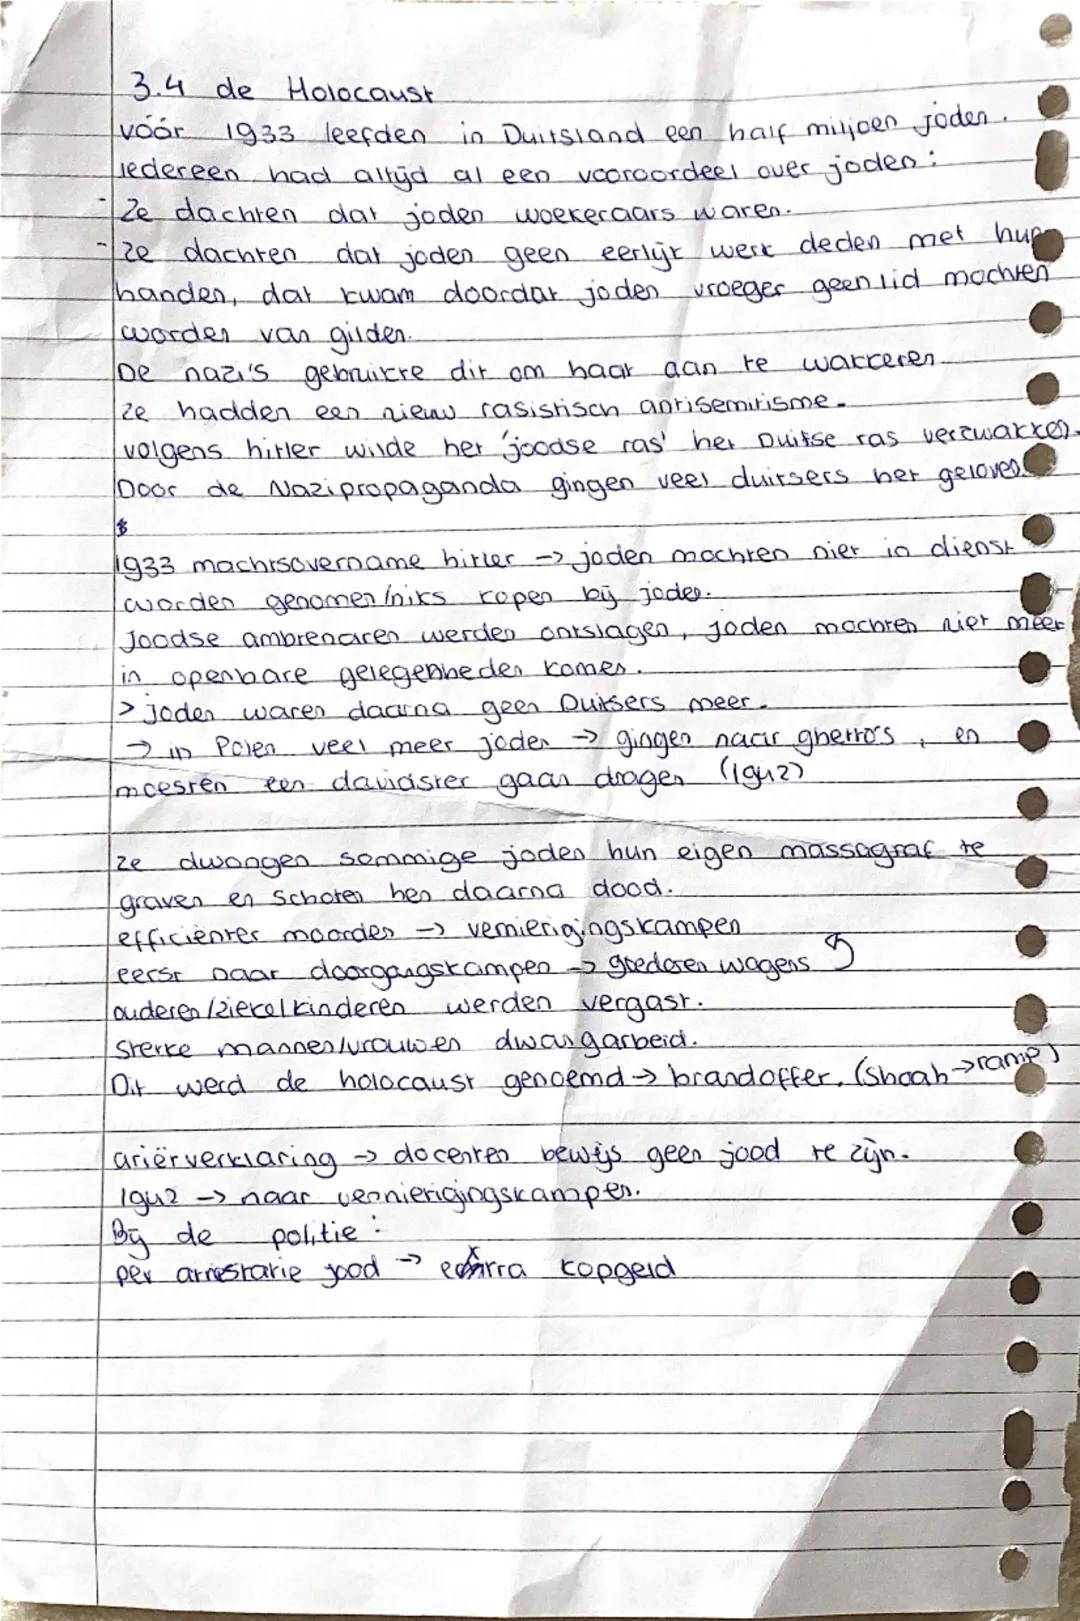 3.4 de Holocaust
vóór 1933 leefden in Duitsland een half miljoen joden.
iedereen had altijd al een vooroordeel over joden:
- Ze dachten dat joden woekeraars waren.
- ze dachten dat joden geen eerlijk werk deden met hun
handen, dat kwam doordat joden vroeger geen lid mochten
worden van gilden.
De nazi's gebruikte dit om haat aan te wakkeren.
ze hadden een nieuw rasistisch antisemitisme.
volgens hitler wilde het 'joodse ras' het Duitse ras verzwakken.
Door de Nazipropaganda gingen veel duitsers het geloven.
1933 machtsovername hitler -> joden mochten niet in dienst
worden genomen/niks kopen bij joden.
Joodse ambtenaren werden ontslagen, joden mochten niet meer
in openbare gelegenheden komen.
> joden waren daarna geen Duitsers meer.
-> in Polen veel meer joden -> gingen naar ghetto's, en
moesten een davidster gaan dragen (1942)
ze dwongen sommige joden hun eigen massagraf te
graven en schoten hen daarna dood.
efficiënter moorden -> vernietigingskampen
eerst naar doorgangskampen -> goederen wagens ↰
ouderen/zieke/kinderen werden vergast.
sterke mannen/vrouwen dwangarbeid.
Dit werd de holocaust genoemd -> brandoffer. (Shoah -> ramp)
ariërverklaring -> docenten bewijs geen jood te zijn.
1942 -> naar vernietigingskampen.
Bij de politie:
per arrestatie jood -> extra kopgeld